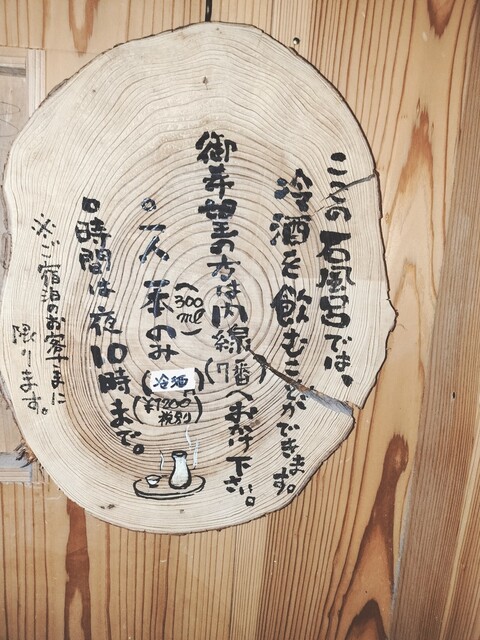 ここの石風呂では、
冷酒を飲むことができます。
御希望の方は内線(7番)へおかけ下さい。
○一人一本のみ
(300ml)
冷酒
(¥1200税別)
○時間は夜10時まで。
※ご宿泊のお客さまに
限ります。